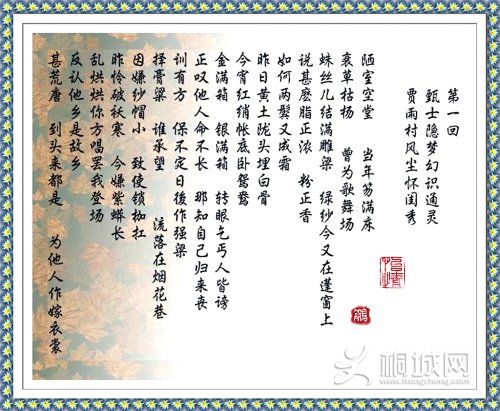 第一回
甄士隐梦幻识通灵
贾雨村风尘怀闺秀
陋室空堂 当年笏满床
衰草枯杨 曾为歌舞场
蛛丝儿结满雕梁 绿纱今又在蓬窗上
说甚麽脂正浓 粉正香
如何两鬓又成霜
昨日黄土陇头埋白骨
今宵红绡帐底卧鸳鸯
金满箱 银满箱 转眼乞丐人皆谤
正叹他人命不长 那知自己归来丧
训有方 保不定日後作强梁
择膏梁 谁承望 流落在烟花巷
因嫌纱帽小 致使锁枷扛
昨怜破袄寒 今嫌紫蟒长
乱烘烘你方唱罢我登场
反认他乡是故乡
甚荒唐 到头来都是 为他人作嫁衣裳
桐城网
www.itongcheng.com